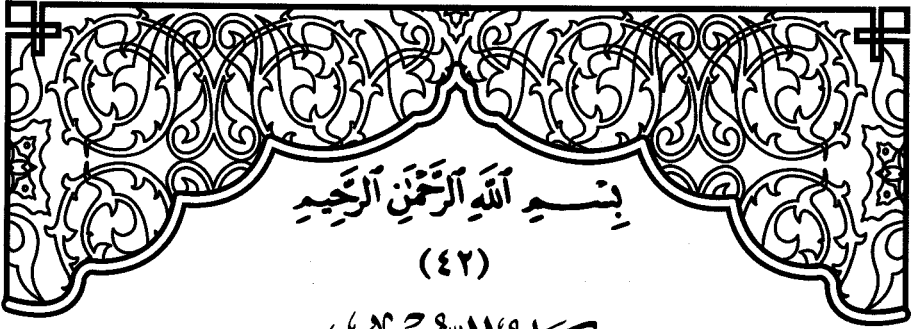 بِسْمِ ٱللَّهِ ٱلرَّحْمَٰنِ ٱلرَّحِيمِ
(٤٢)